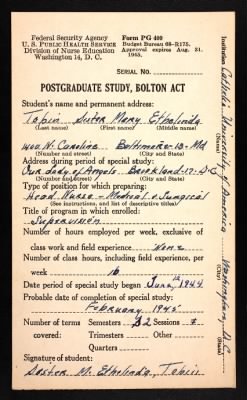 Federal Security Agency
U. S. PUBLIC HEALTH SERVICE
Division of Nurse Education
Washington 14, D. C.
Form PG 400
Budget Bureau 68-R175.
Approval expires Aug. 31,
1945.
SERIAL NO.
POSTGRADUATE STUDY, BOLTON ACT
Student's name and permanent address:
Tobin Sister Mary Ethelinda
(Last name) (First name) (Middle name)
N. Caroline Baltimore-13-Md
(Number and street) (City and State)
Address during period of special study:
Our Lady of Angels Brookland-17-D.C
(Number and street) (City and State)
Type of position for which preparing:
Head Nurse - Medical & Surgical
(See instructions, and list of descriptive titles)
Title of program in which enrolled:
Supervision
Number of hours employed per week, exclusive of
class work and field experience None
Number of class hours, including field experience,
per week 16
Date period of special study began June 12th 1944
Probable date of completion of special study:
February 1945
Number of terms Semesters 2 Sessions
covered: Trimesters Other
Quarters
Signature of student:
Sister M. Ethelinda, Tobin
Institution Catholic University of America Washington, D.C.
(City) (State)